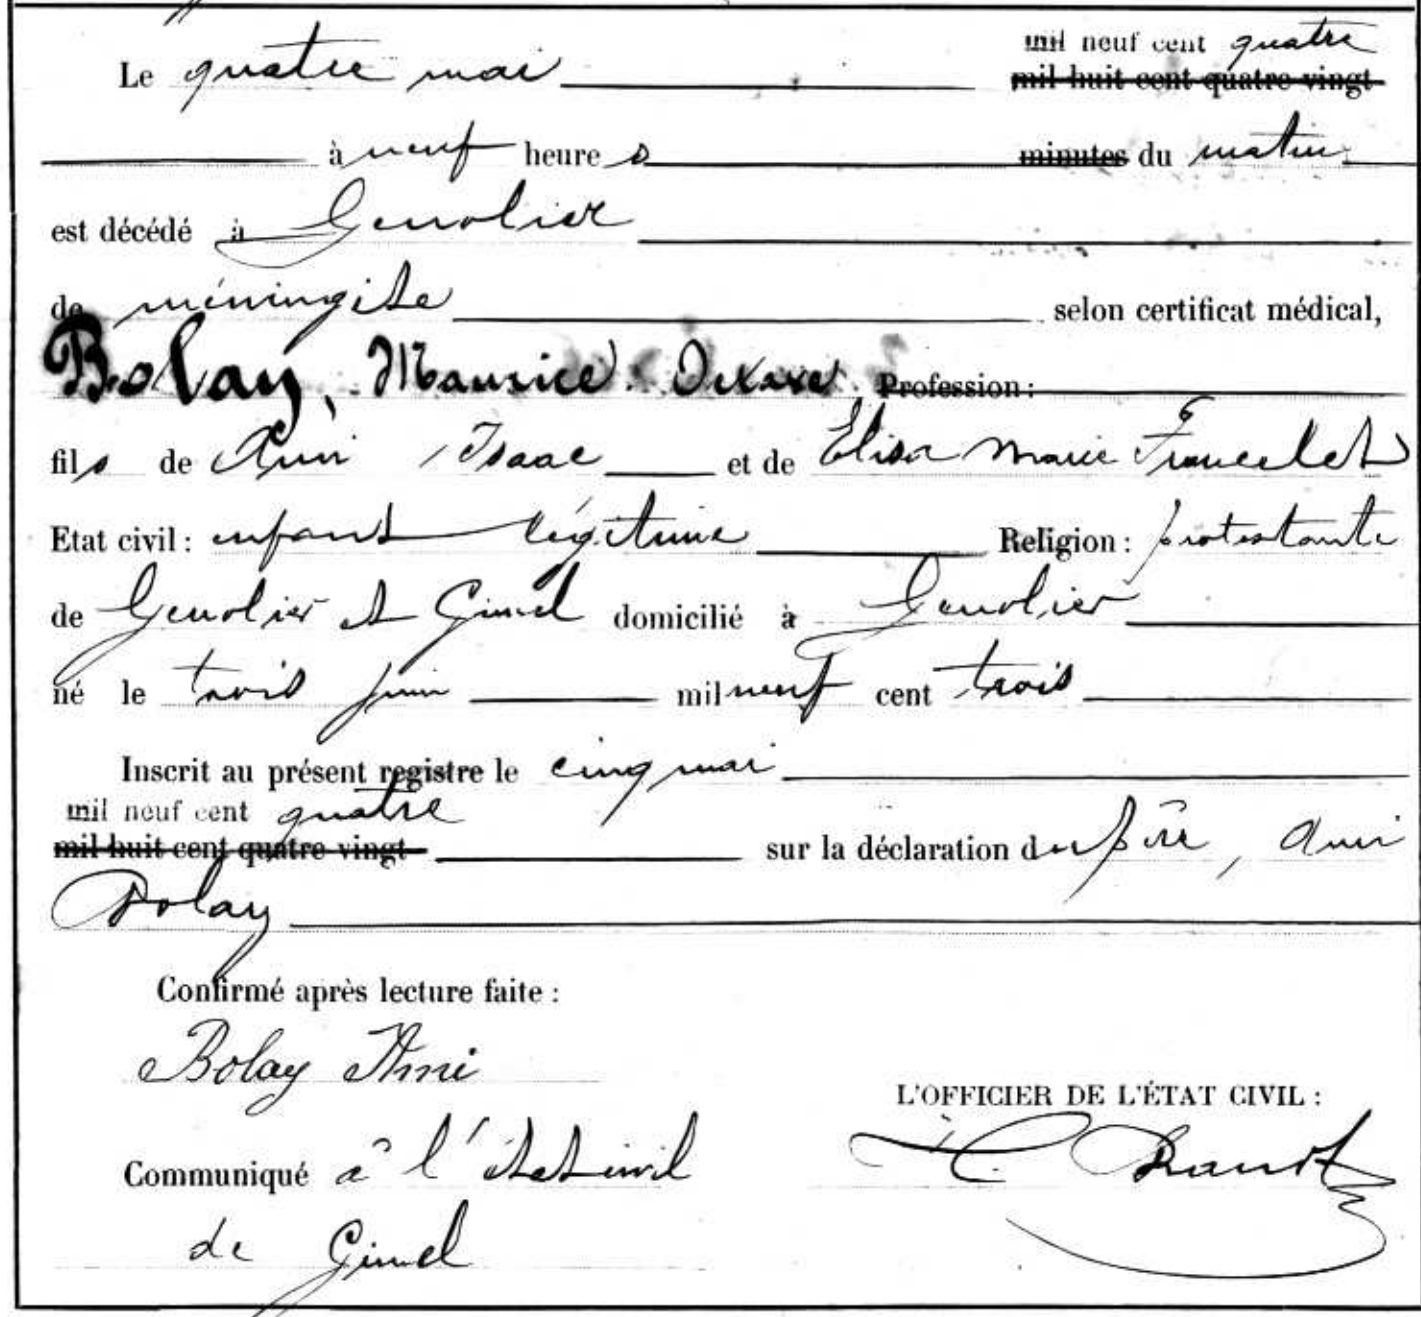 mil neuf cent quatre
Le quatre mai mil huit cent quatre vingt
à neuf heures minutes du matin
est décédé à Genolier
de méningite selon certificat médical,
Bolay, Maurice Octave. Profession:
fils de Ami Isaac et de Elisa Marie Francelet
Etat civil: enfant légitime Religion: protestante
de Genolier et Gimel domicilié à Genolier
né le trois juin mil neuf cent trois
Inscrit au présent registre le cinq mai
mil neuf cent quatre
mil huit cent quatre vingt sur la déclaration du père, Ami
Bolay
Confirmé après lecture faite:
Bolay Ami
L'OFFICIER DE L'ÉTAT CIVIL:
Communiqué à l'état civil
de Gimel